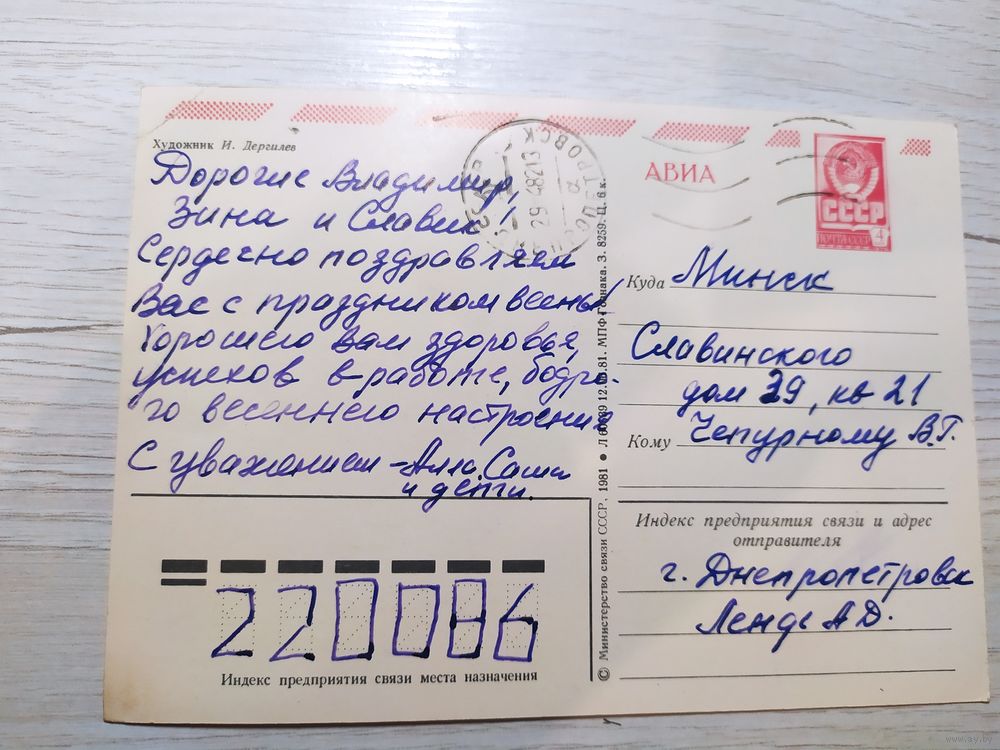 Художник И. Дергилев
АВИА
СССР
4
Дорогие Владимир,
Зина и Славик!
Сердечно поздравляем
Вас с праздником весны!
Хорошего Вам здоровья,
успехов в работе, бодро-
го весеннего настроения
С уважением – Алла, Саша
и дети.
Куда Минск
Славинского
дом 39, кв 21
Кому Чепурному В.Г.
Индекс предприятия связи и адрес
отправителя
г. Днепропетровск
А.Д.
220086
Индекс предприятия связи места назначения
© Министерство связи СССР. 1981 ● 81. МПФ Гознака. З. 8259. Ц. 6 к.
www.ay.by